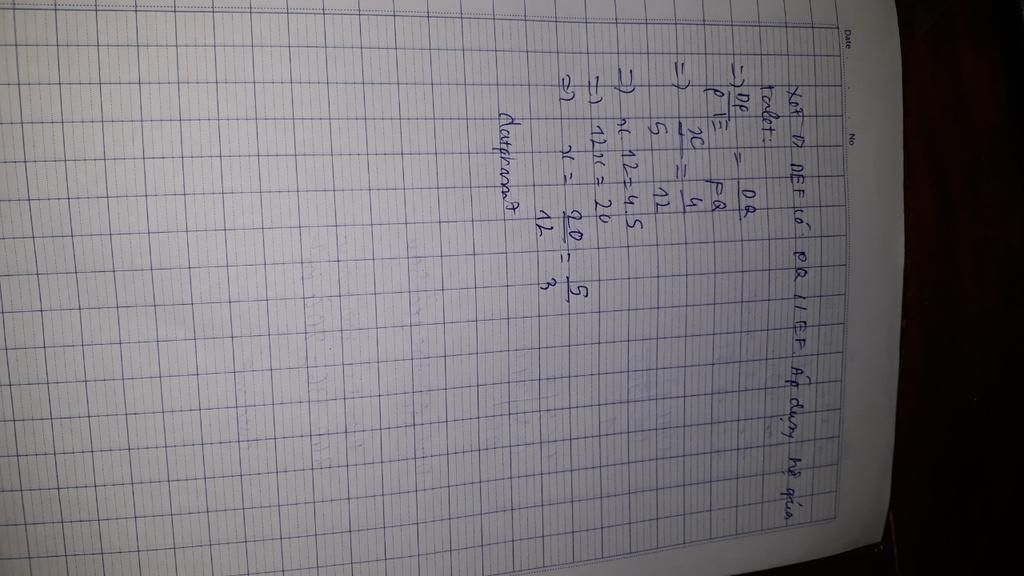 Date No
Xét Δ DEF có PQ // EF. Áp dụng hệ quả
talet:
=> DP/PE = DQ/FQ
=> x/5 = 4/12
=> x.12 = 4.5
=> 12x = 20
=> x = 20/12 = 5/3